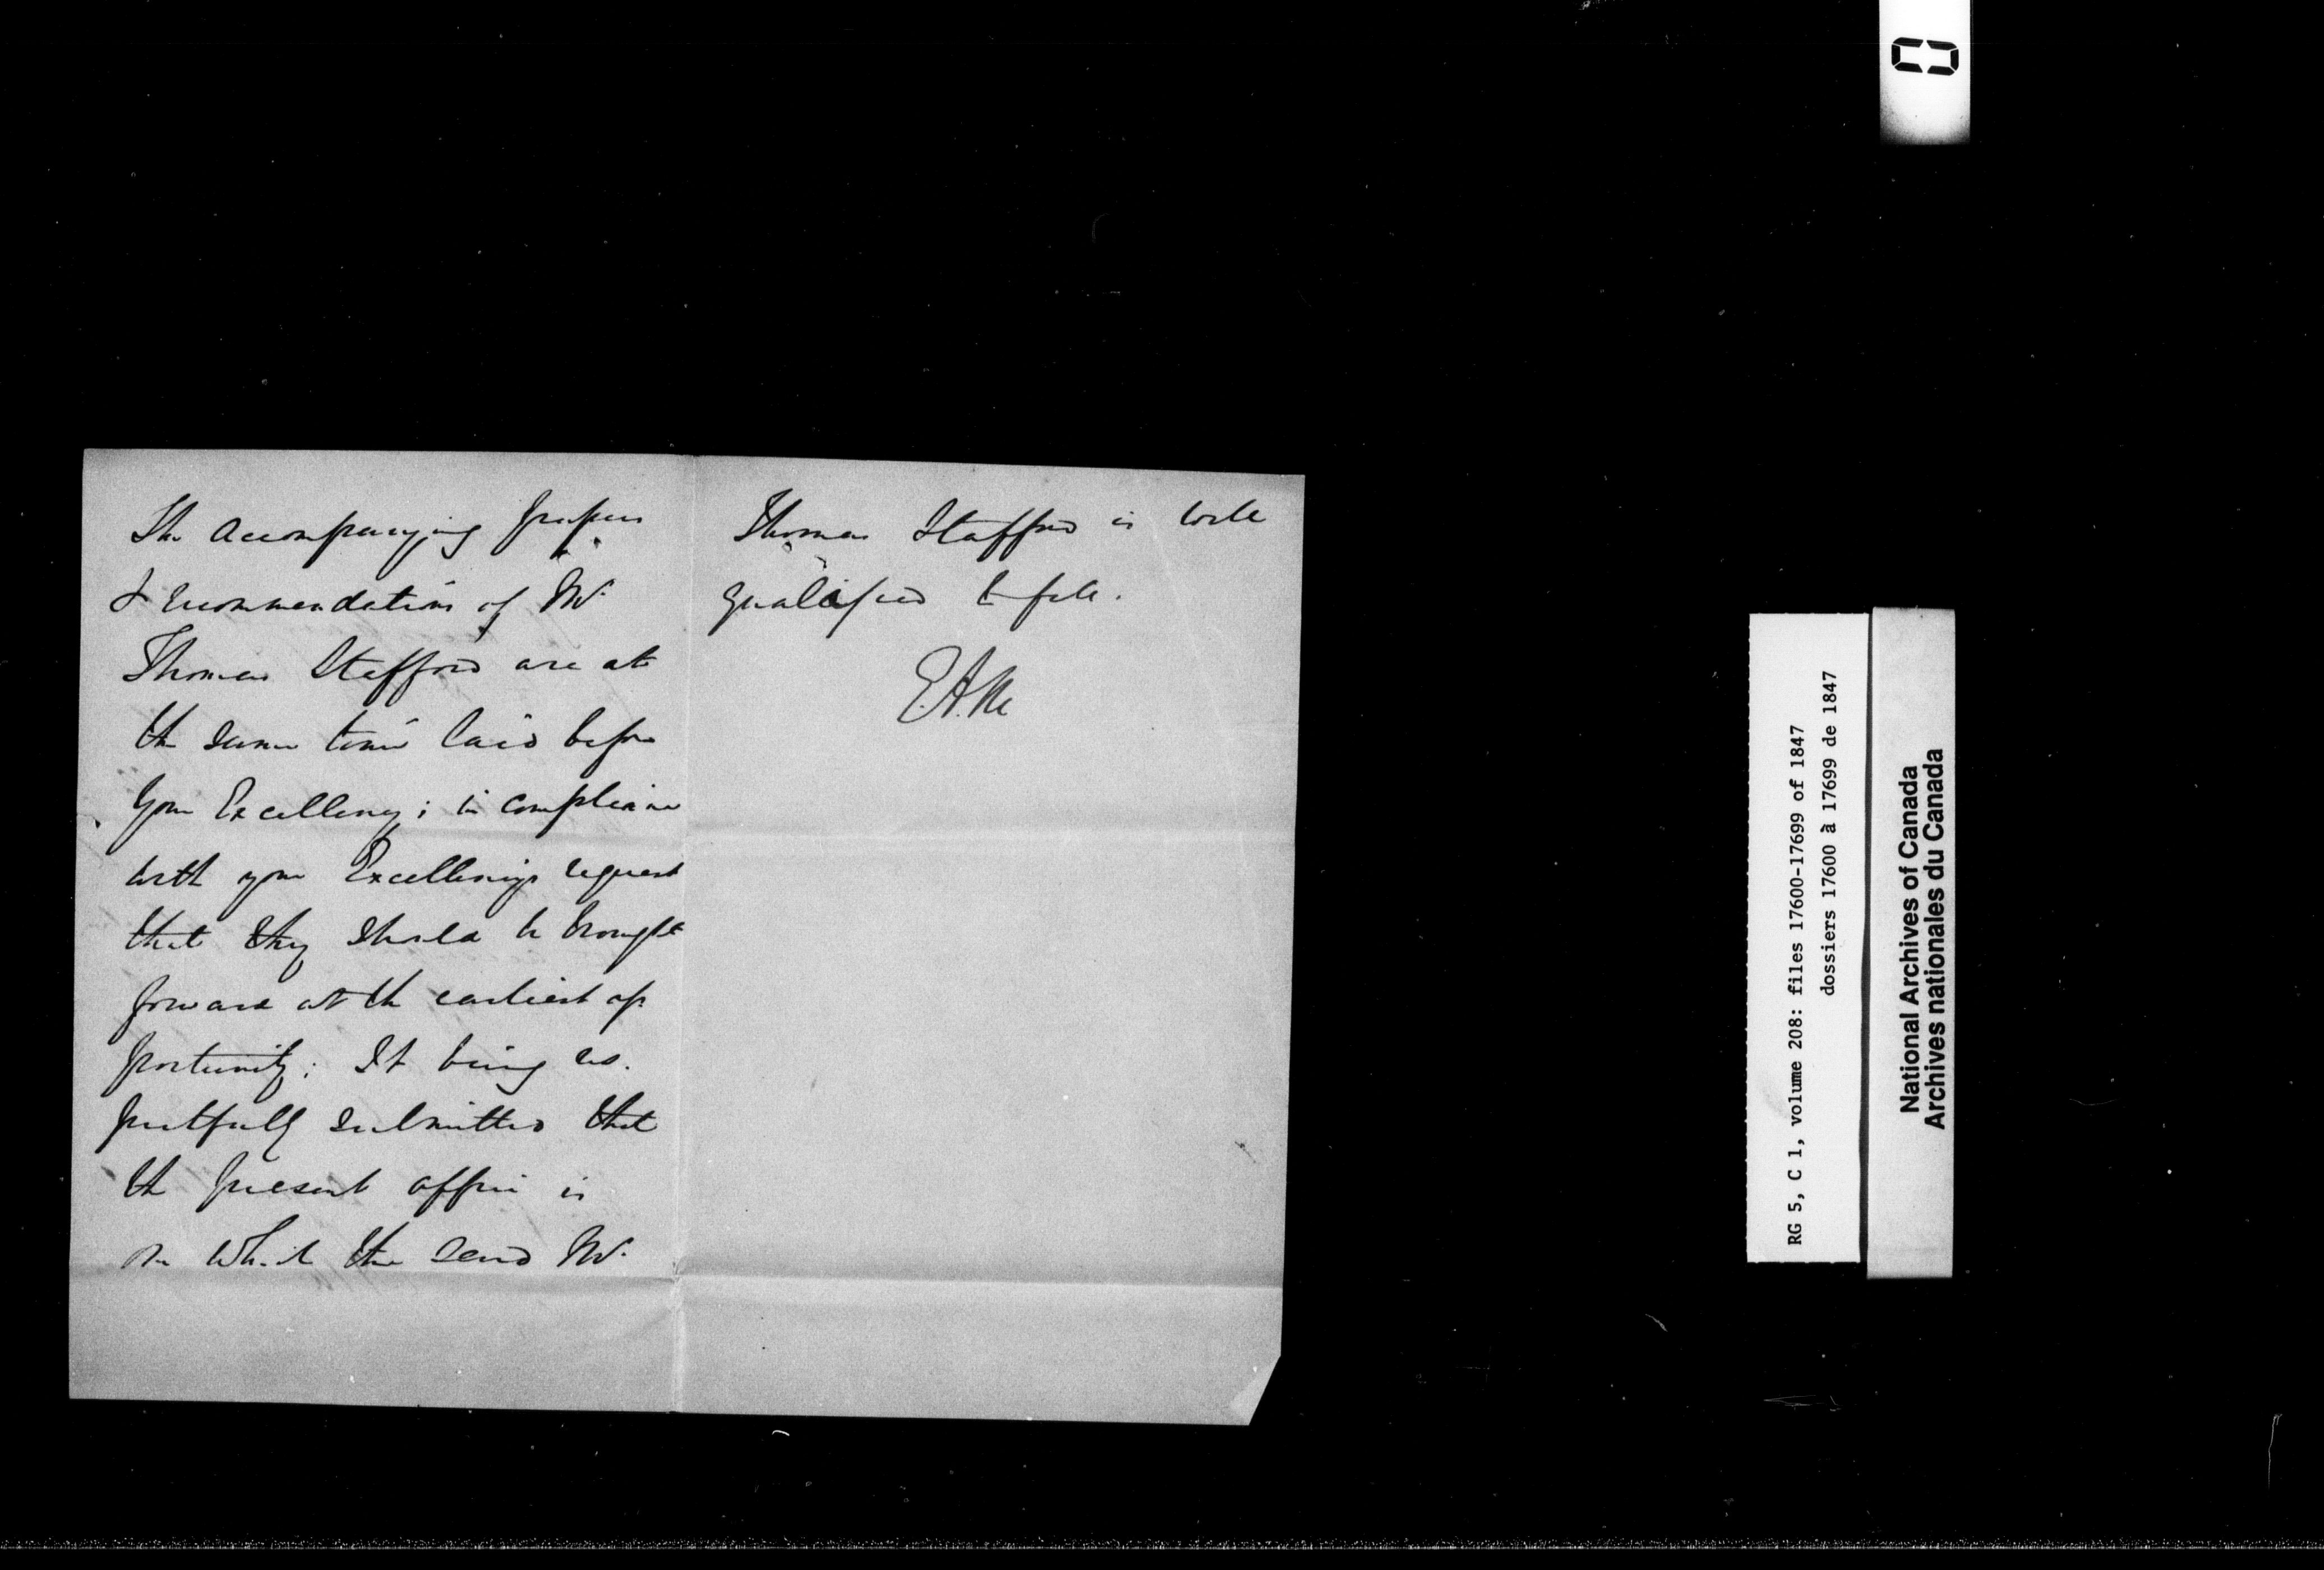 The accompanying papers
& recommendations of Mr.
Thomas Stafford are at
the same time laid before
Your Excellency; in compliance
with your Excellency's request
that they should be brought
forward at the earliest op
portunity; It being res.
pectfully submitted that
the present office is
one which the said Mr.
Thomas Stafford is well
qualified to fill.
E.A.M
RG 5, C 1, volume 208: files 17600-17699 of 1847
dossiers 17600 à 17699 de 1847
National Archives of Canada
Archives nationales du Canada